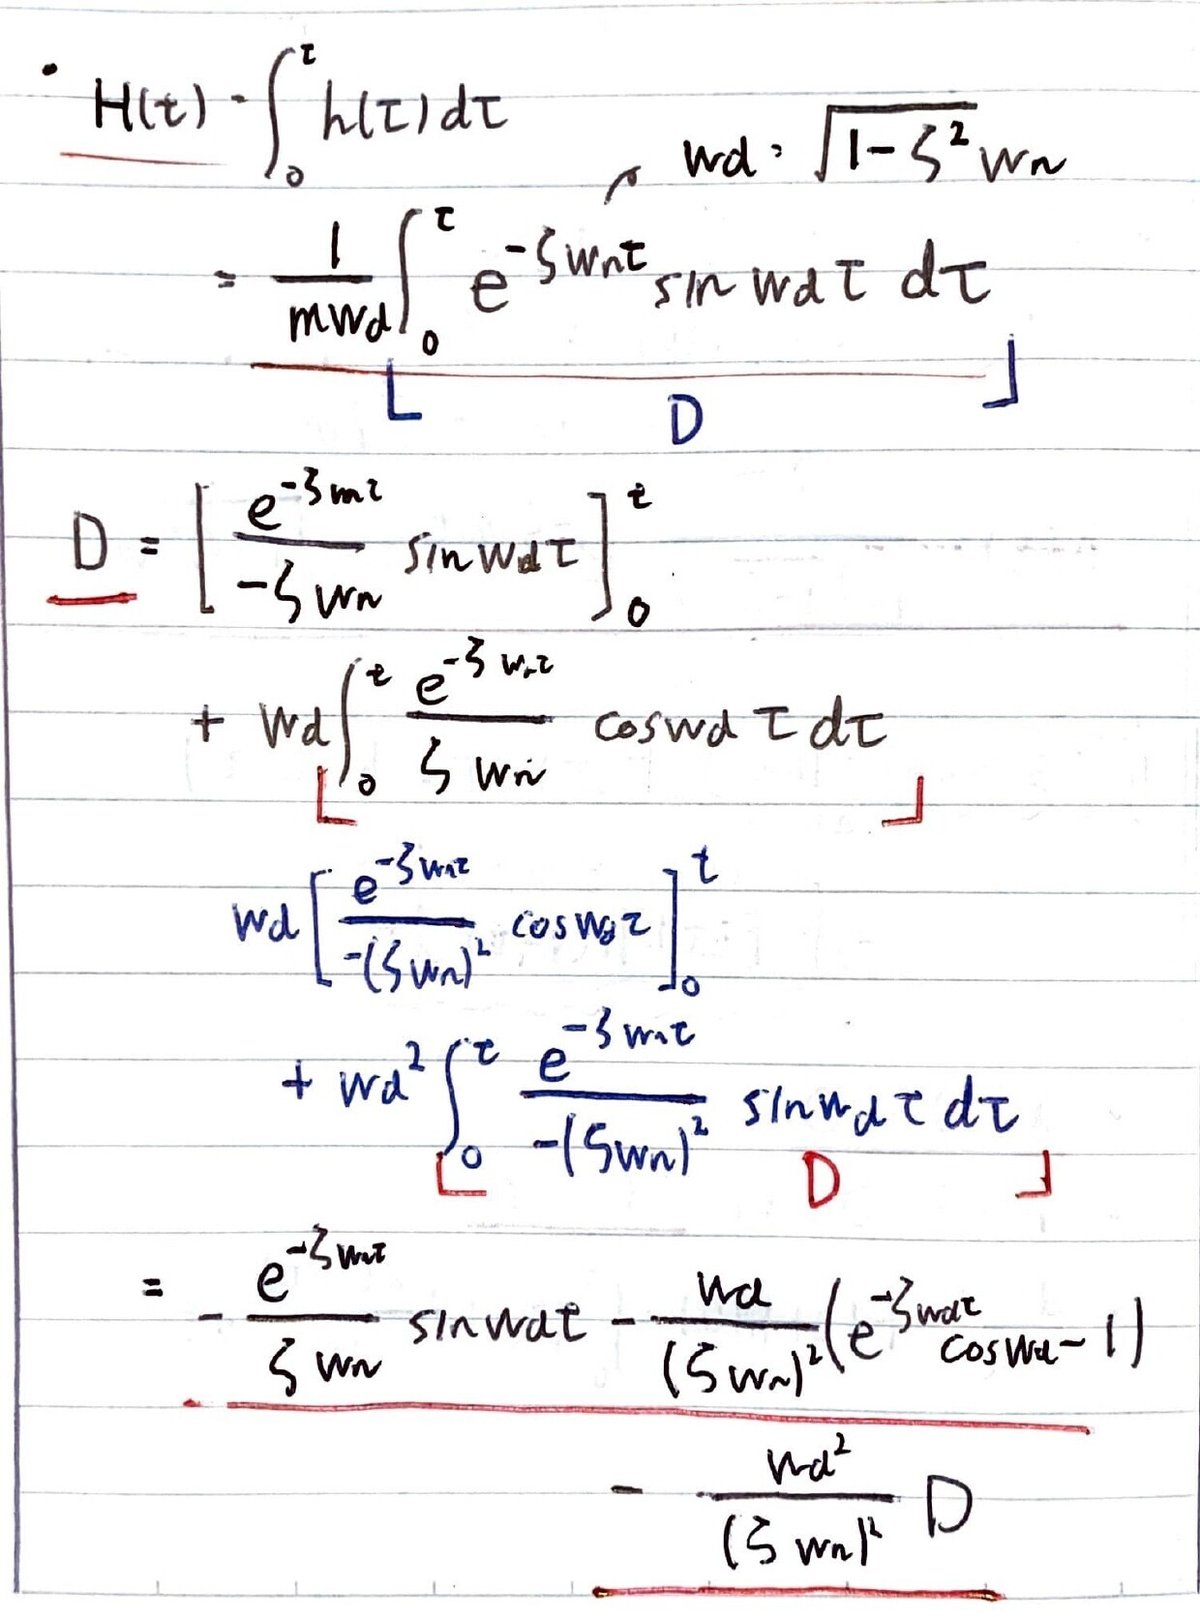 · H(t) = ∫₀^t h(τ)dτ
wd = √(1-ζ²) wn
= 1/(mwd) ∫₀^t e^(-ζwnτ) sin wdτ dτ
D
D = [e^(-ζwnτ)/(-ζwn) sin wdτ]₀^t
+ wd ∫₀^t e^(-ζwnτ)/(ζwn) cos wd τ dτ
wd [e^(-ζwnτ)/(-(ζwn)²) cos wdτ]₀^t
+ wd² ∫₀^t e^(-ζwnτ)/(-(ζwn)²) sin wd τ dτ
D
= - e^(-ζwnt)/(ζwn) sin wdt - wd/(ζwn)² (e^(-ζwdt) cos wd - 1)
- wd²/(ζwn)² D